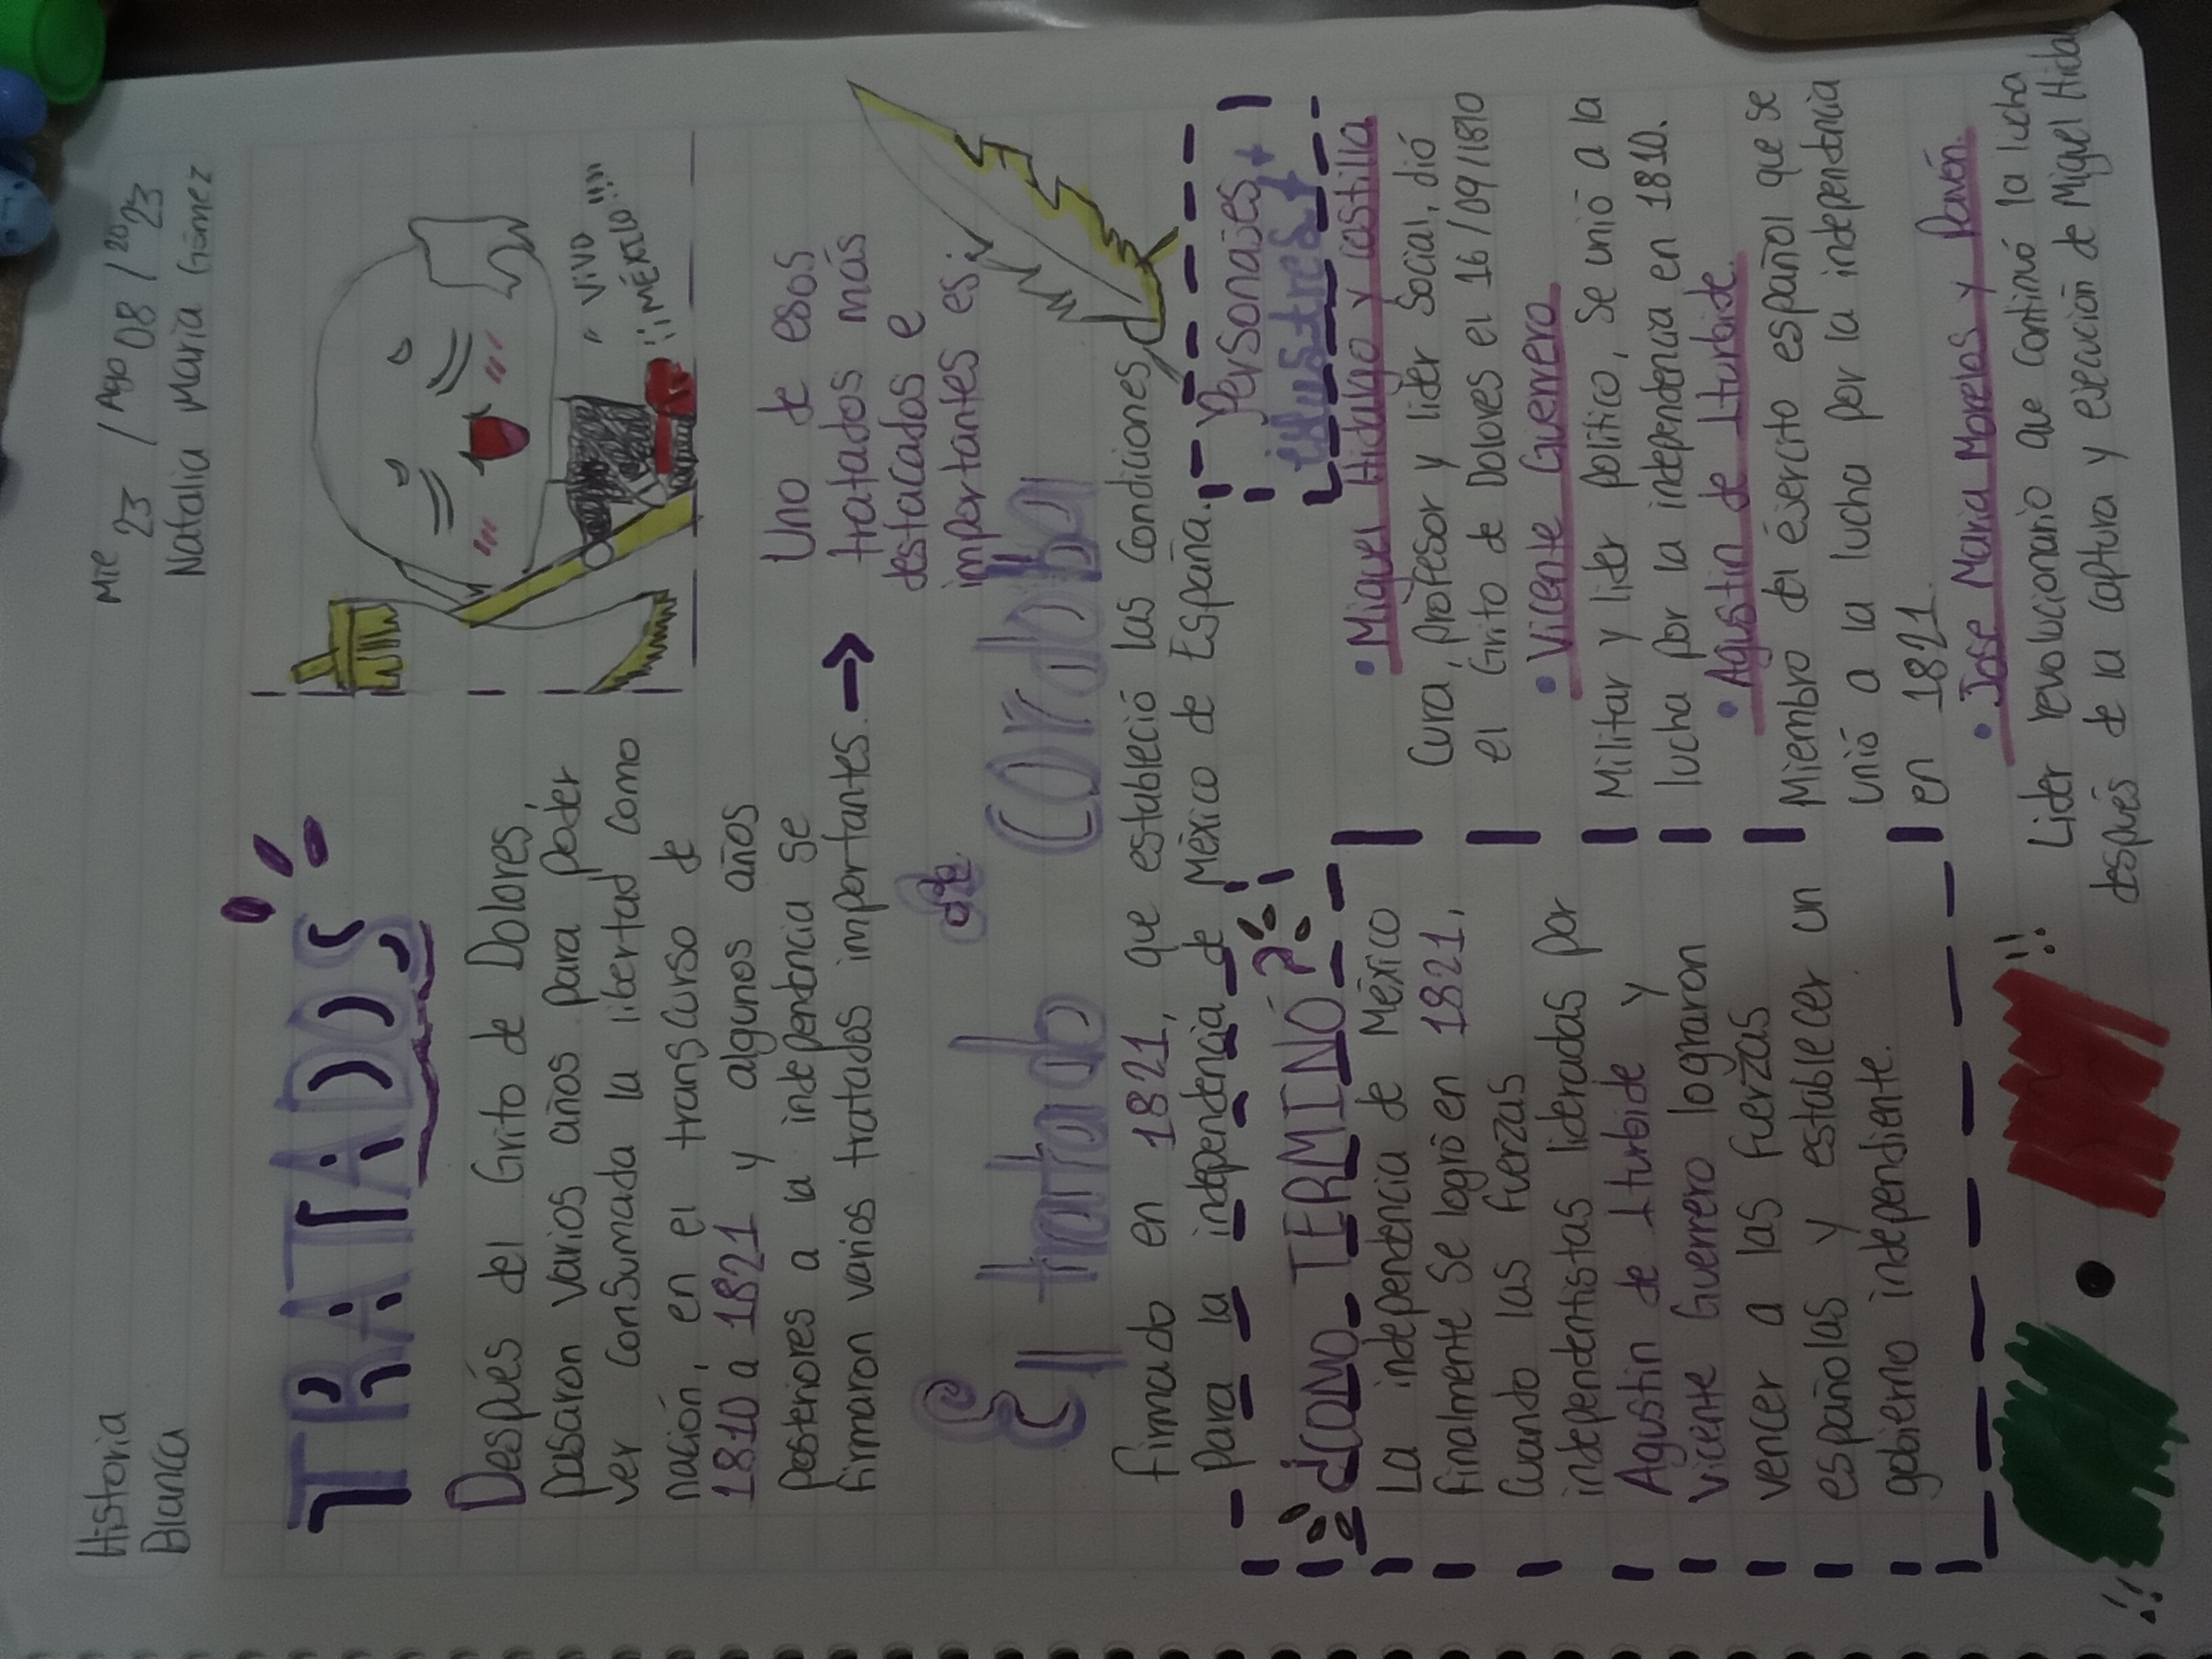 Historia
Blanca
Mie
23 / Ago 08 / 2023
Natalia María Gómez
TRATADOS
Después del Grito de Dolores,
pasaron varios años para poder
ver consumada la libertad como
nación, en el transcurso de
1810 a 1821 y algunos años
posteriores a la independencia se
firmaron varios tratados importantes.
" VIVO
¡¡¡MÉXICO!!!"
Uno de esos
tratados más
destacados e
importantes es:
El tratado de Cordoba
firmado en 1821, que estableció las condiciones
para la independencia de México de España.
¿CÓMO TERMINÓ?
La independencia de México
finalmente se logró en 1821,
cuando las fuerzas
independentistas lideradas por
Agustin de Iturbide y
Vicente Guerrero lograron
vencer a las fuerzas
españolas y establecer un
gobierno independiente.
Personajes
ilustres
• Miguel Hidalgo y Costilla
Cura, profesor y lider social, dió
el Grito de Dolores el 16/09/1810
• Vicente Guerrero
Militar y lider político, se unió a la
lucha por la independencia en 1810.
• Agustin de Iturbide.
Miembro del éjercito español que se
unió a la lucha por la independencia
en 1821.
• Jose Maria Morelos y Pavón.
Lider revolucionario que continuó la lucha
después de la captura y ejecución de Miguel Hidal